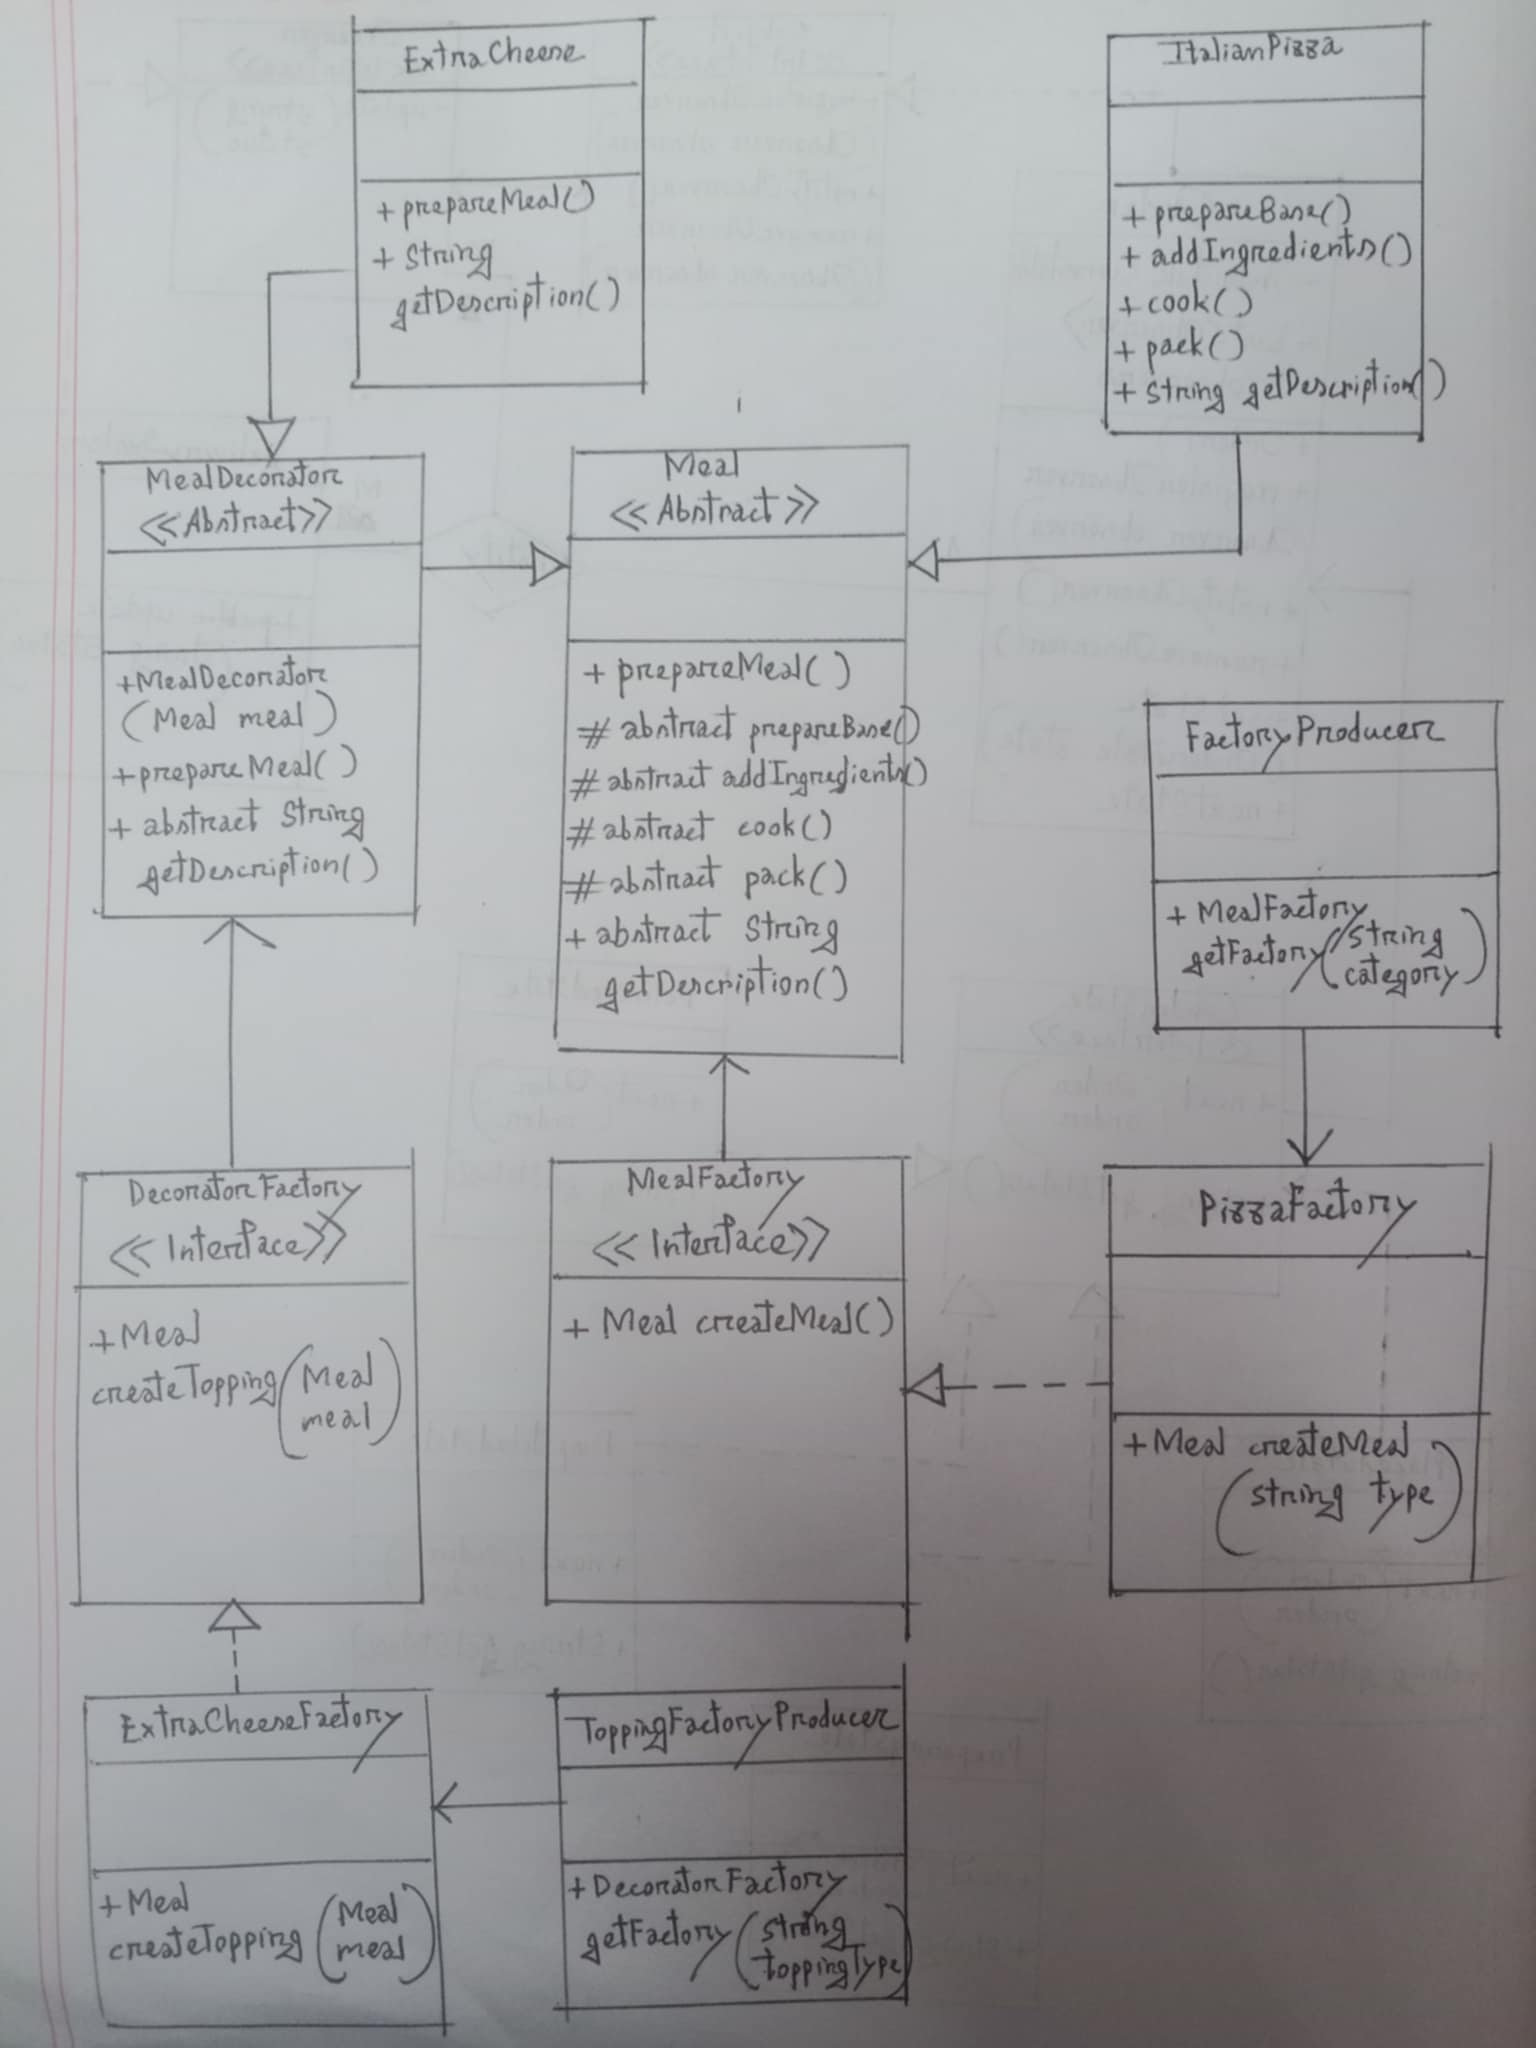 ExtraCheese
+ prepareMeal()
+ String
getDescription()
ItalianPizza
+ prepareBase()
+ addIngredients()
+ cook()
+ pack()
+ String getDescription()
MealDecorator
<<Abstract>>
+MealDecorator
(Meal meal)
+prepareMeal()
+ abstract String
getDescription()
Meal
<<Abstract>>
+ prepareMeal()
# abstract prepareBase()
# abstract addIngredients()
# abstract cook()
# abstract pack()
+ abstract String
getDescription()
FactoryProducer
+ MealFactory
getFactory(string
category)
DecoratorFactory
<<Interface>>
+Meal
createTopping(Meal
meal)
MealFactory
<<Interface>>
+ Meal createMeal()
PizzaFactory
+Meal createMeal
(string type)
ExtraCheeseFactory
+Meal
createTopping(Meal
meal)
ToppingFactoryProducer
+DecoratorFactory
getFactory(string
toppingType)